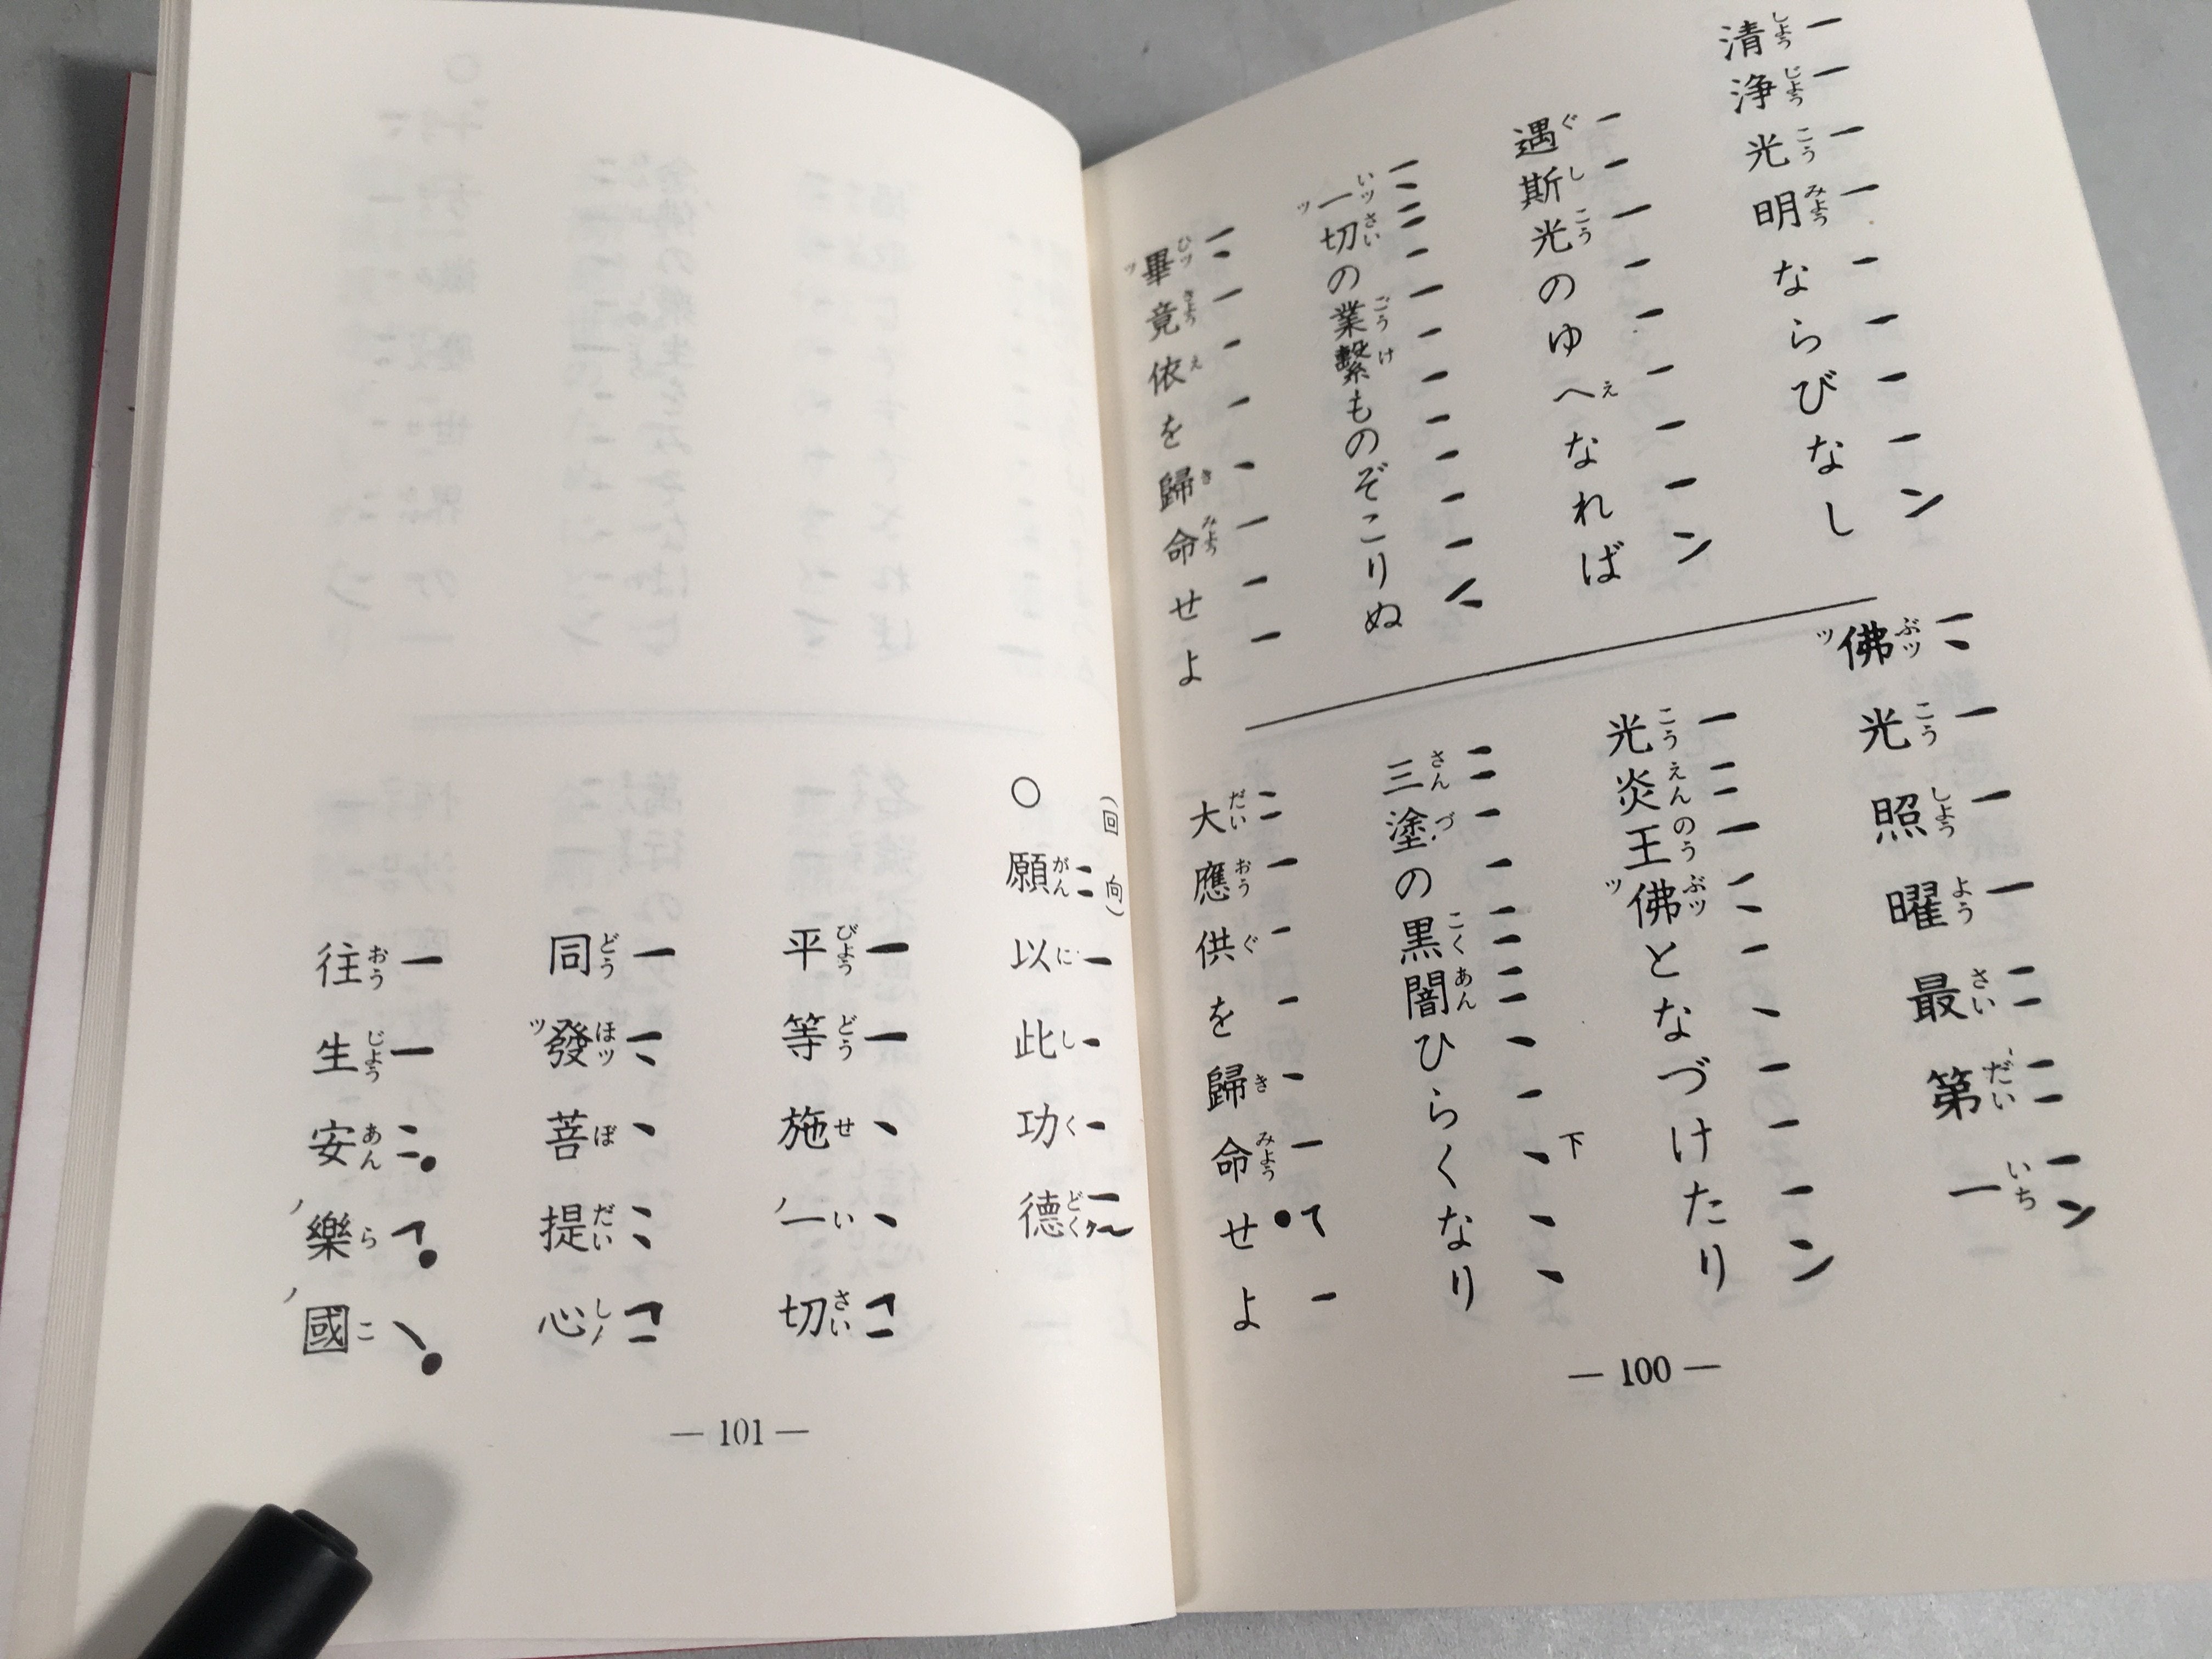 清浄光明ならびなし
遇斯光のゆへなれば
一切の業繋ものぞこりぬ
畢竟依を歸命せよ
佛光照曜最第一
光炎王佛となづけたり
三塗の黒闇ひらくなり
下
大應供を歸命せよ
— 100 —
(回向)
○ 願以此功德
平等施一切
同發菩提心
往生安樂國
— 101 —